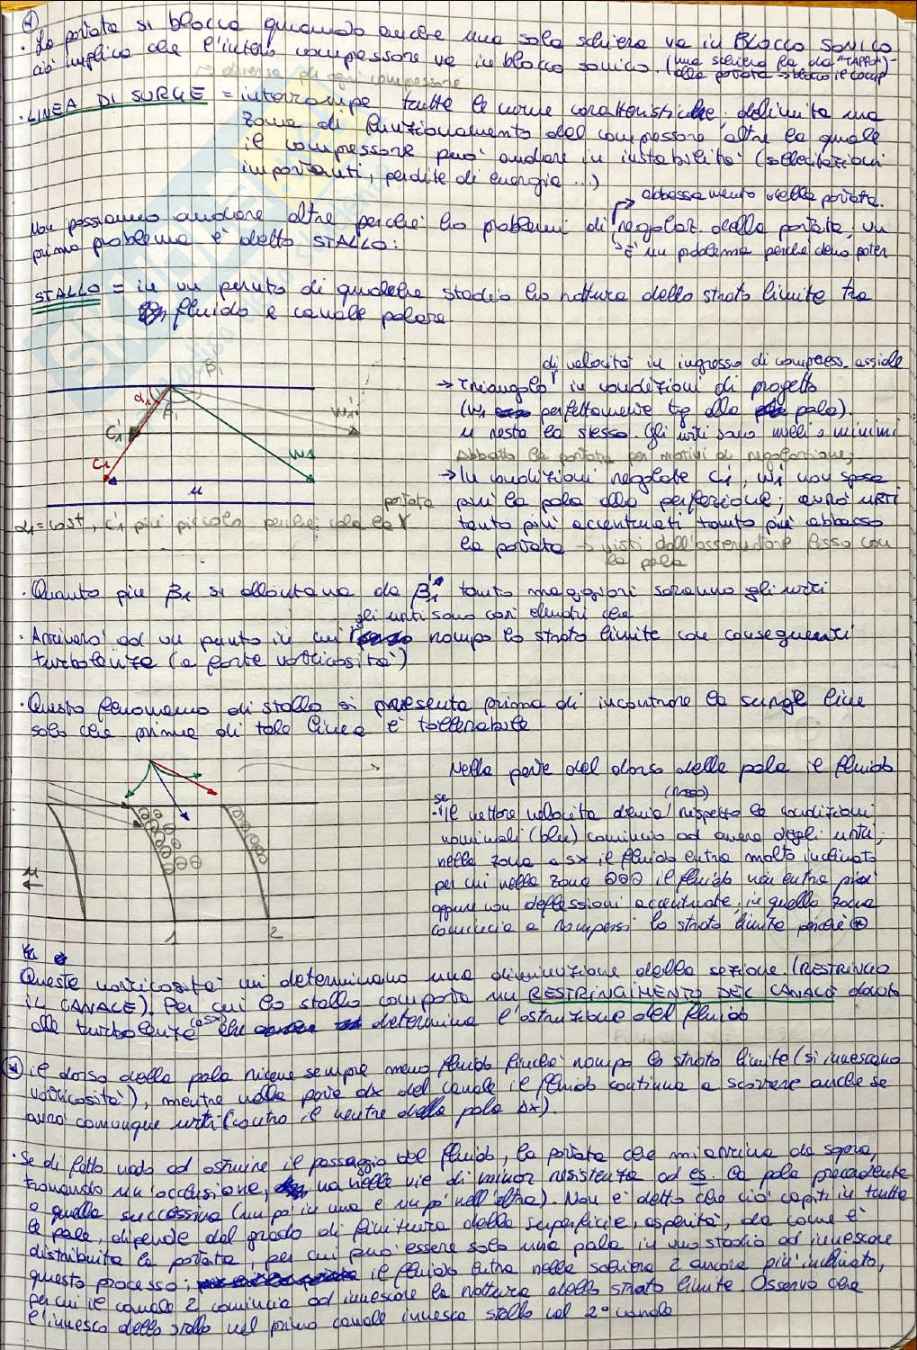 ④
· La portata si blocca quando anche una sola schiera va in BLOCCO SONICO
ciò implica che l'intero compressore va in blocco sonico. (una schiera fa da "TAPPO")-
alla portata
→ diversa di ogni compressore
· LINEA DI SURGE = interrompe tutte le curve caratteristiche, delimita una
zona di funzionamento del compressore, oltre la quale
il compressore può andare in instabilità (sollecitazioni
importanti, perdite di energia ...)
→ abbassamento della portata.
Non possiamo andare oltre perché ho problemi di regolaz. della portata, un
primo problema è detto STALLO:
↳ è un problema perché devo poter
STALLO = in un punto di qualche stadio ho rottura dello strato limite tra
fluido e canale palare
di velocità in ingresso di compress. assiale
→ Triangolo in condizioni di progetto
(w1 perfettamente tg alla pala).
u resta la stessa. Gli urti sono nulli o minimi
Abbasso la portata per motivi di regolazione;
→ In condizioni regolate c1', w1' non sposa
più la pala alla perfezione; avrò urti
tanto più accentuati tanto più abbasso
la portata → visti dall'osservatore fisso con
la pala
α1 β1 β1'
c1' w1'
c1 w1
u
portata
α1 = cost, c1' più piccola perché cala la
· Quanto più β1 si allontana da β1' tanto maggiori saranno gli urti
gli urti sono così elevati che
· Arriverò ad un punto in cui rompo lo strato limite con conseguenti
turbolenze (e forte vorticosità)
· Questo fenomeno di stallo si presenta prima di incontrare la surge line
solo che prima di tale linea è tollerabile
Nella parte del dorso della pala il fluido
(rosso)
· se il vettore velocità devia rispetto le condizioni
nominali (blu) comincio ad avere degli urti;
nella zona a sx il fluido entra molto inclinato
per cui nella zona ⊖⊖⊖ il fluido non entra più
oppure con deflessioni accentuate, in quella zona
comincia a rompersi lo strato limite perché ⊛
u
1 2
Queste vorticosità mi determinano una diminuzione della sezione. (RESTRINGO
IL CANALE). Per cui lo stallo comporta un RESTRINGIMENTO DEL CANALE dovuto
alle turbolenze (a sx) che determina l'ostruzione del fluido
⊛ il dorso della pala riceve sempre meno fluido finché rompo lo strato limite (si innescano
vorticosità), mentre nella parte dx del canale il fluido continua a scorrere anche se
avrò comunque urti (contro il ventre della pala dx).
· Se di fatto vado ad ostruire il passaggio del fluido, la portata che mi arriva da sopra,
trovando un'occlusione, va nelle vie di minor resistenza ad es. la pala precedente
o quella successiva (un po' in una e un po' nell'altra). Non è detto che ciò capiti in tutte
le pale, dipende dal grado di finitura della superficie, asperità, da come è
distribuita la portata, per cui può essere solo una pala in uno stadio ad innescare
questo processo; il fluido entra nella schiera 2 ancora più inclinato,
per cui il canale 2 comincia ad innescare la rottura dello strato limite. Osservo che
l'innesco dello stallo nel primo canale innesca stallo nel 2° canale